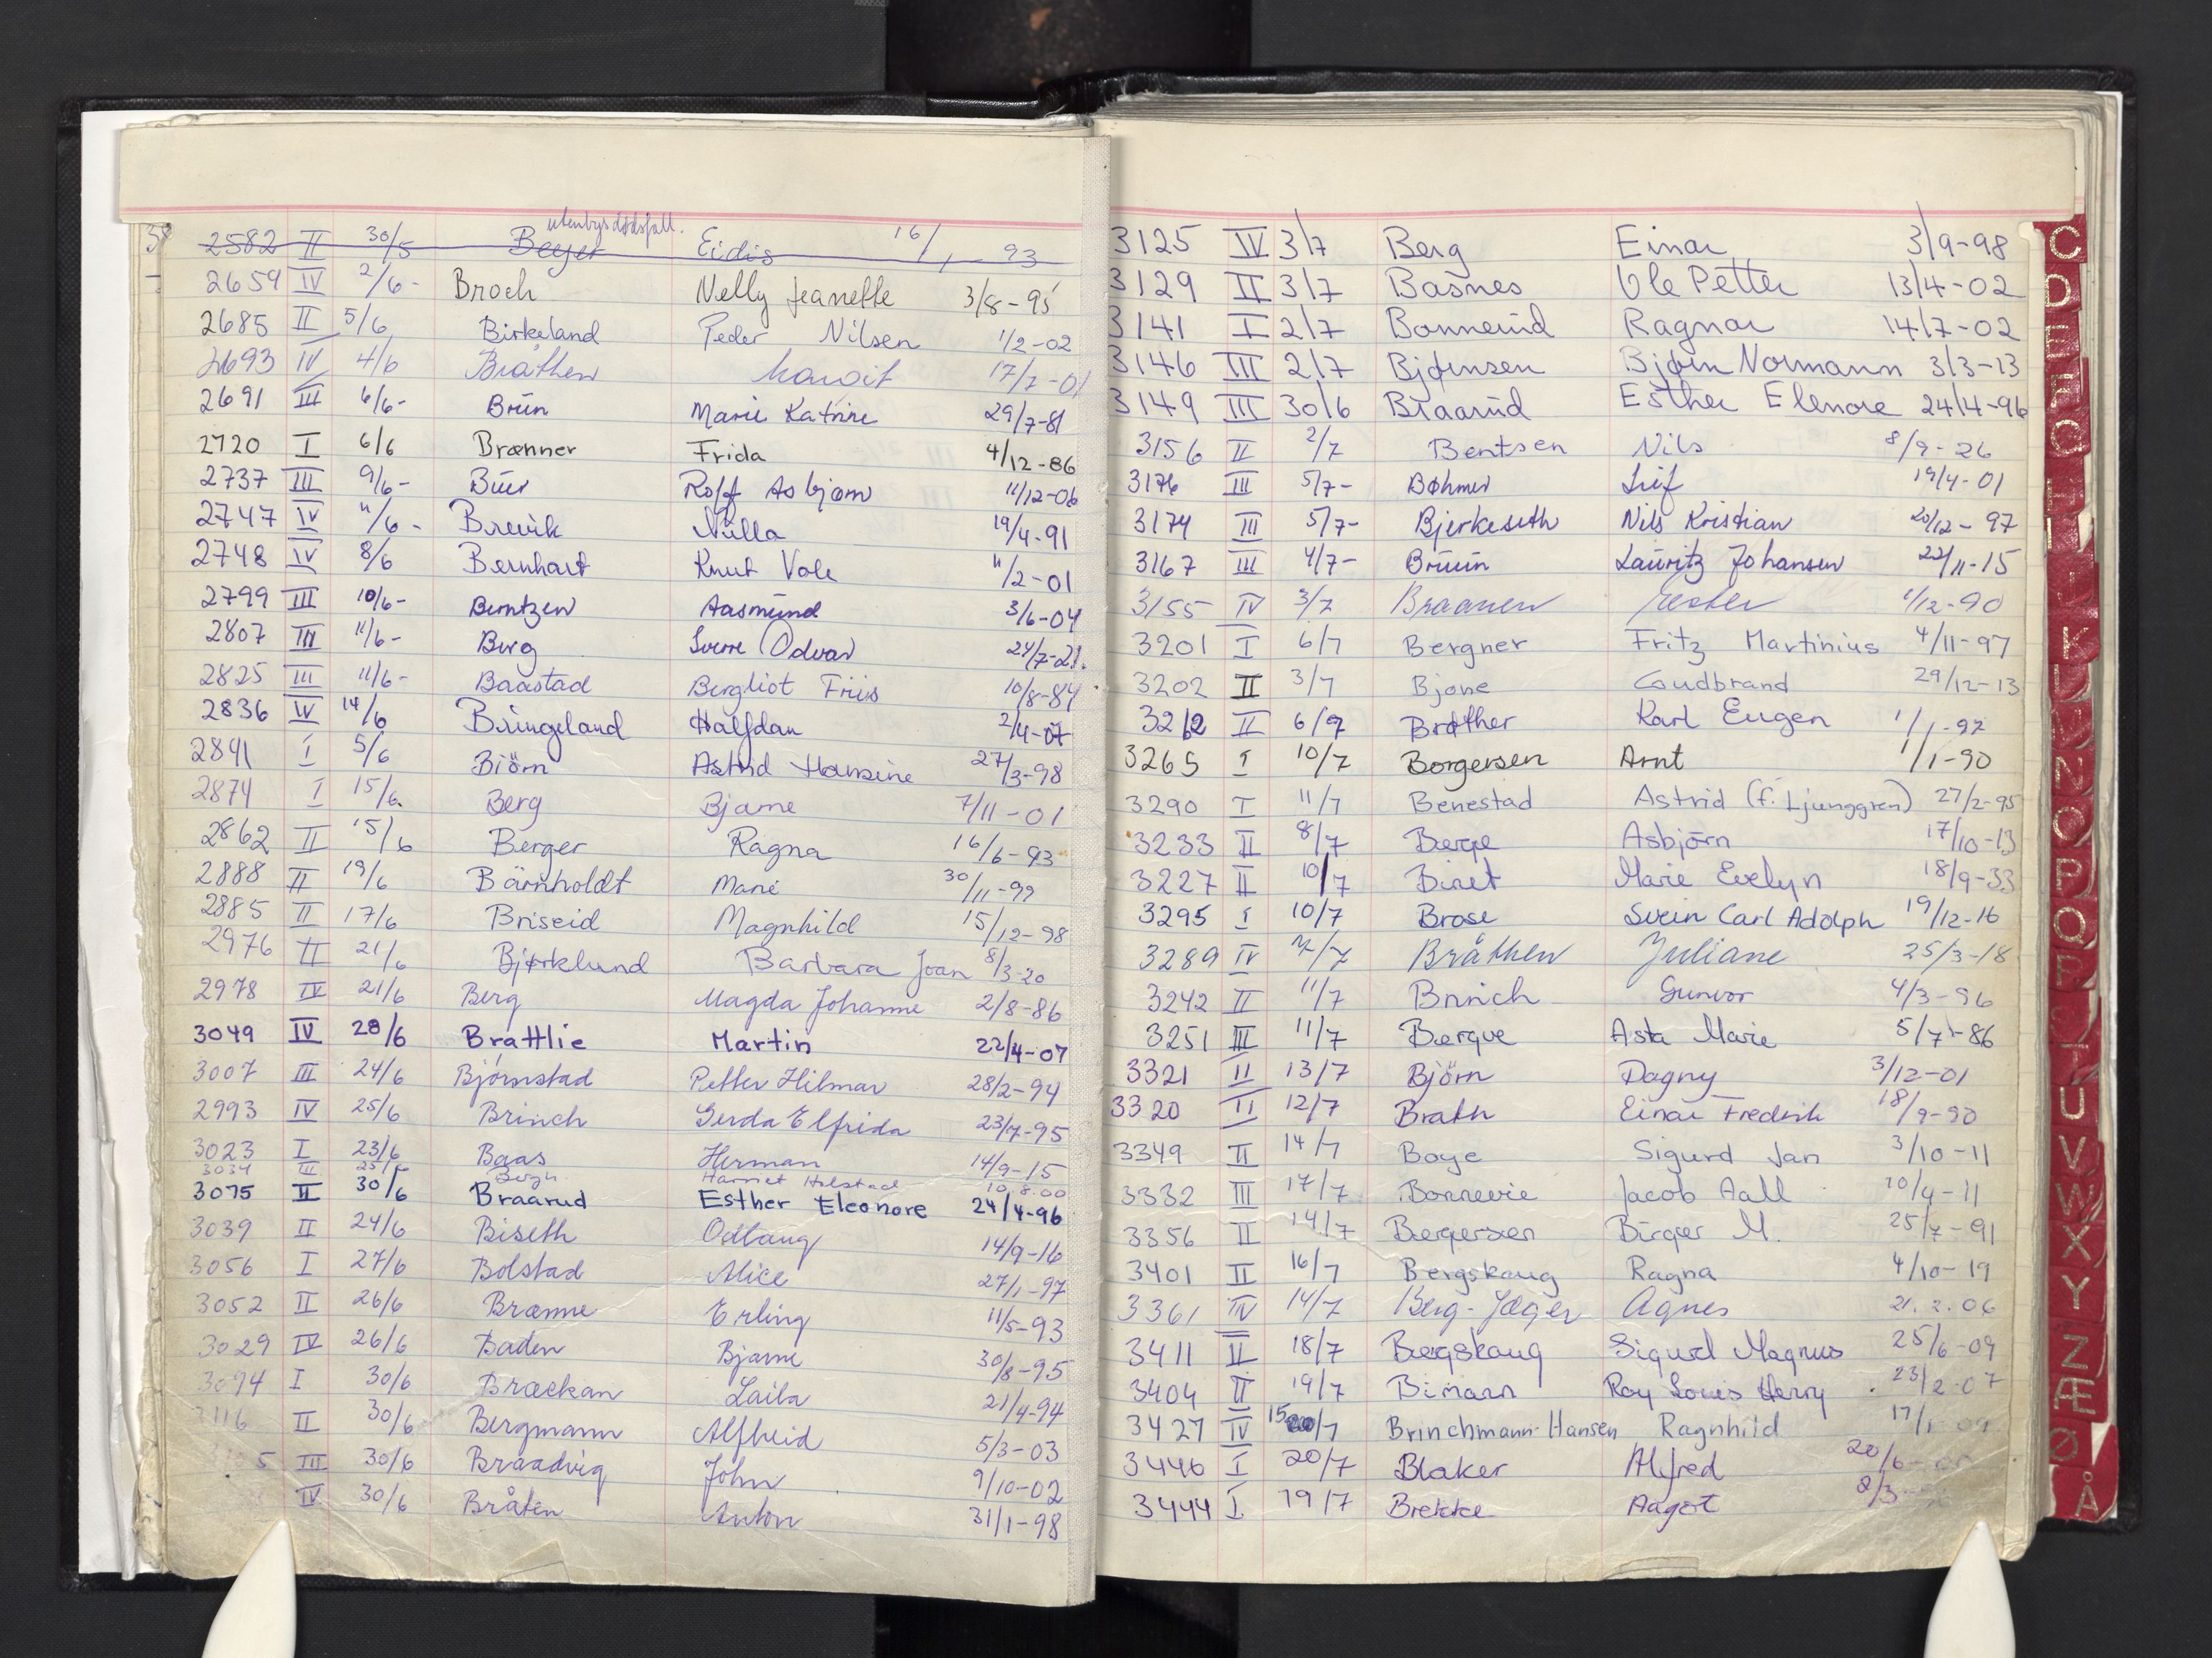 utenbysdødsfall.
2582 II 30/5 Beyer Eidis 16/ 93
2659 IV 2/6- Broch Nelly Jeanette 3/8-95
2685 II 5/6 Birkeland Peder Nilsen 1/2-02
2693 IV 4/6 Bråthen Margit 17/7-01
2691 III 6/6- Brun Marie Katrine 29/7-81
2720 I 6/6 Brænner Frida 4/12-86
2737 III 9/6- Buer Rolf Asbjørn 11/12-06
2747 IV 11/6- Brevik Nulla 19/4-91
2748 IV 8/6 Bernhart Knut Vale 11/2-01
2799 III 10/6- Berntzen Aasmund 3/6-04
2807 III 11/6- Berg Sverre Odvar 24/7-21.
2825 III 11/6- Baastad Bergliot Friis 10/8-84
2836 IV 14/6 Bringeland Halfdan 2/4-07
2841 I 5/6 Biörn Astrid Hansine 27/3-98
2874 I 15/6. Berg Bjarne 7/11-01
2862 II 15/6 Berger Ragna 16/6-93
2888 II 19/6 Bärnholdt Marie 30/11-99
2885 II 17/6 Briseid Magnhild 15/12-98
2976 II 21/6 Bjørklund Barbara Joan 8/3-20
2978 IV 21/6 Berg Magda Johanne 2/8-86
3049 IV 28/6 Brattlie Martin 22/4-07
3007 III 24/6 Bjørnstad Petter Hilmar 28/2-94
2993 IV 25/6 Brinch Gerda Elfrida 23/7-95
3023 I 23/6 Baas Herman 14/9-15
3034 III 25/6 Bergh Harriet Holstad 10.8.00
3075 II 30/6 Braarud Esther Eleonore 24/4-96
3039 II 24/6 Biseth Odlaug 14/9-16
3056 I 27/6 Bolstad Alice 27/1-97
3052 II 26/6 Brænne Erling 11/5-93
3029 IV 26/6 Baden Bjarne 30/8-95
3094 I 30/6 Brækan Laila 21/4-94
3116 II 30/6 Bergmann Alfheid 5/3-03
5 III 30/6 Braadvig John 9/10-02
IV 30/6 Bråten Anton 31/1-98
3125 IV 3/7 Berg Einar 3/9-98
3129 II 3/7 Basnes Ole Petter 13/4-02
3141 I 2/7 Bonnerud Ragnar 14/7-02
3146 III 2/7 Bjørnsen Bjørn Normann 3/3-13
3149 III 30/6 Braarud Esther Elenore 24/4-96
3156 II 2/7 Bentsen Nils 8/9-26
3176 III 5/7- Bøhmer Leif 19/4-01
3174 III 5/7- Bjerkeseth Nils Kristian 20/12-97
3167 III 4/7- Bruun Lauritz Johansen 22/11-15
3155 IV 3/7 Braanen Ester 1/12-90
3201 I 6/7 Bergner Fritz Martinius 4/11-97
3202 II 3/7 Bjone Gudbrand 29/12-13
3212 II 6/7 Brøther Karl Eugen 1/1-97
3265 I 10/7 Borgersen Arnt 1/1-90
3290 I 11/7 Benestad Astrid (f. Ljunggren) 27/2-95
3233 II 8/7 Berge Asbjörn 17/10-13
3227 II 10/7 Biret Marie Evelyn 18/9-33
3295 I 10/7 Brose Svein Carl Adolph 19/12-16
3289 IV 7/7 Bråthen Juliane 25/3-18
3242 II 11/7 Brinch Gunvor 4/3-96
3251 III 11/7 Bergve Asta Marie 5/7-86
3321 II 13/7 Björn Dagny 3/12-01
3320 II 12/7 Brath Einar Fredrik 18/9-90
3349 II 14/7 Boye Sigurd Jan 3/10-11
3332 III 17/7 Bonnevie Jacob Aall 10/4-11
3356 II 14/7 Bergersen Birger M. 25/7-91
3401 II 16/7 Bergskaug Ragna 4/10-19
3361 IV 14/7 Berg-Jæger Agnes 21.2.06
3411 II 18/7 Bergskaug Sigurd Magnus 25/6-09
3404 II 19/7 Bimann Roy Louis Henry 23/2-07
3427 IV 15/7 Brinchmann-Hansen Ragnhild 17/1
3446 I 20/7 Blaker Alfred 20/6
3444 I 19/7 Brekke Aagot 8/3
C
D
E
F
G
H
I
J
K
L
M
N
O
P
Q
R
S
T
U
V
W
X
Y
Z
Æ
Ø
Å